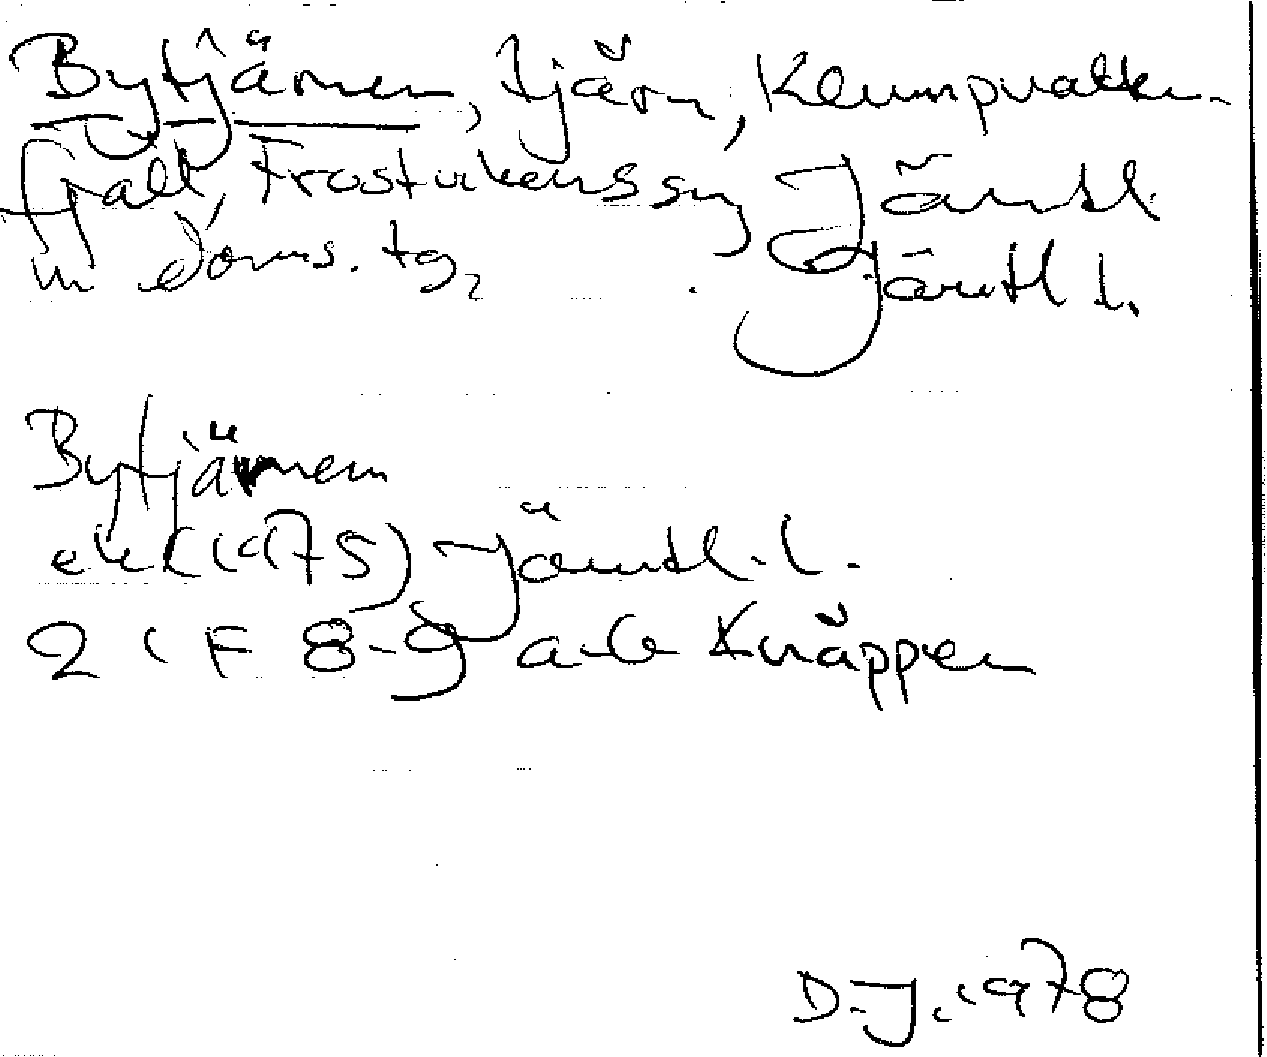 Bytjärnen, tjärn, Klumpvatten-
fjäll, Frostvikens sn Jämtl.
n doms. tg, Jämtl l.
Bytjärnen
ek (1975) Jämtl. l.
22 F 8-9 a-b Knäppen
D.J. 1978